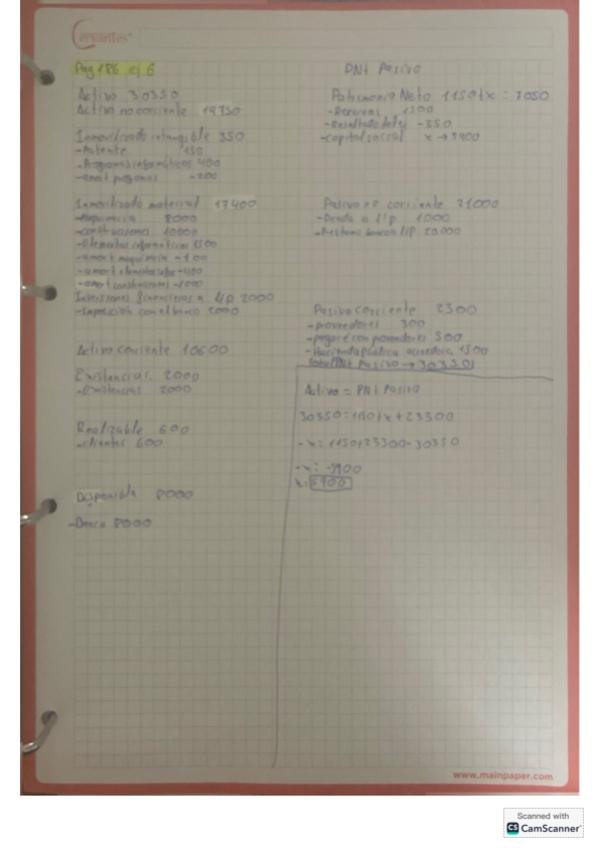 Pag 186 ej 6
Activo 30350
Activo no corriente 19750
Inmovilizado intangible 350
-Patente 150
-Programas informáticos 400
-amort programas -200
Inmovilizado material 17400
-Maquinaria 8000
-construcciones 10000
-Elementos informaticos 1500
-amort maquinaria -100
-amort construcciones -1000
Inversiones financieras a l/p 2000
-Imposición con el banco 2000
Activo corriente 10600
Existencias 2000
-Existencias 2000
Realizable 600
-clientes 600
Disponible 8000
-Banco 8000
PN+ Pasivo
Patrimonio Neto 1150+x = 7050
-Reservas 1500
-Resultado del ej -350
-capital social x → 5900
Pasivo no corriente 21000
-Deuda a l/p 1000
-Prestamo bancario l/p 20000
Pasivo corriente 2300
-proveedores 300
-pagaré con proveedores 500
-Hacienda pública acreedora 1500
Total PN+ Pasivo → 30350
Activo = PN+ Pasivo
30350=1150+x+23300
-x= 1150+23300-30350
-x= -5900
x= 5900
www.mainpaper.com
Scanned with
CS CamScanner